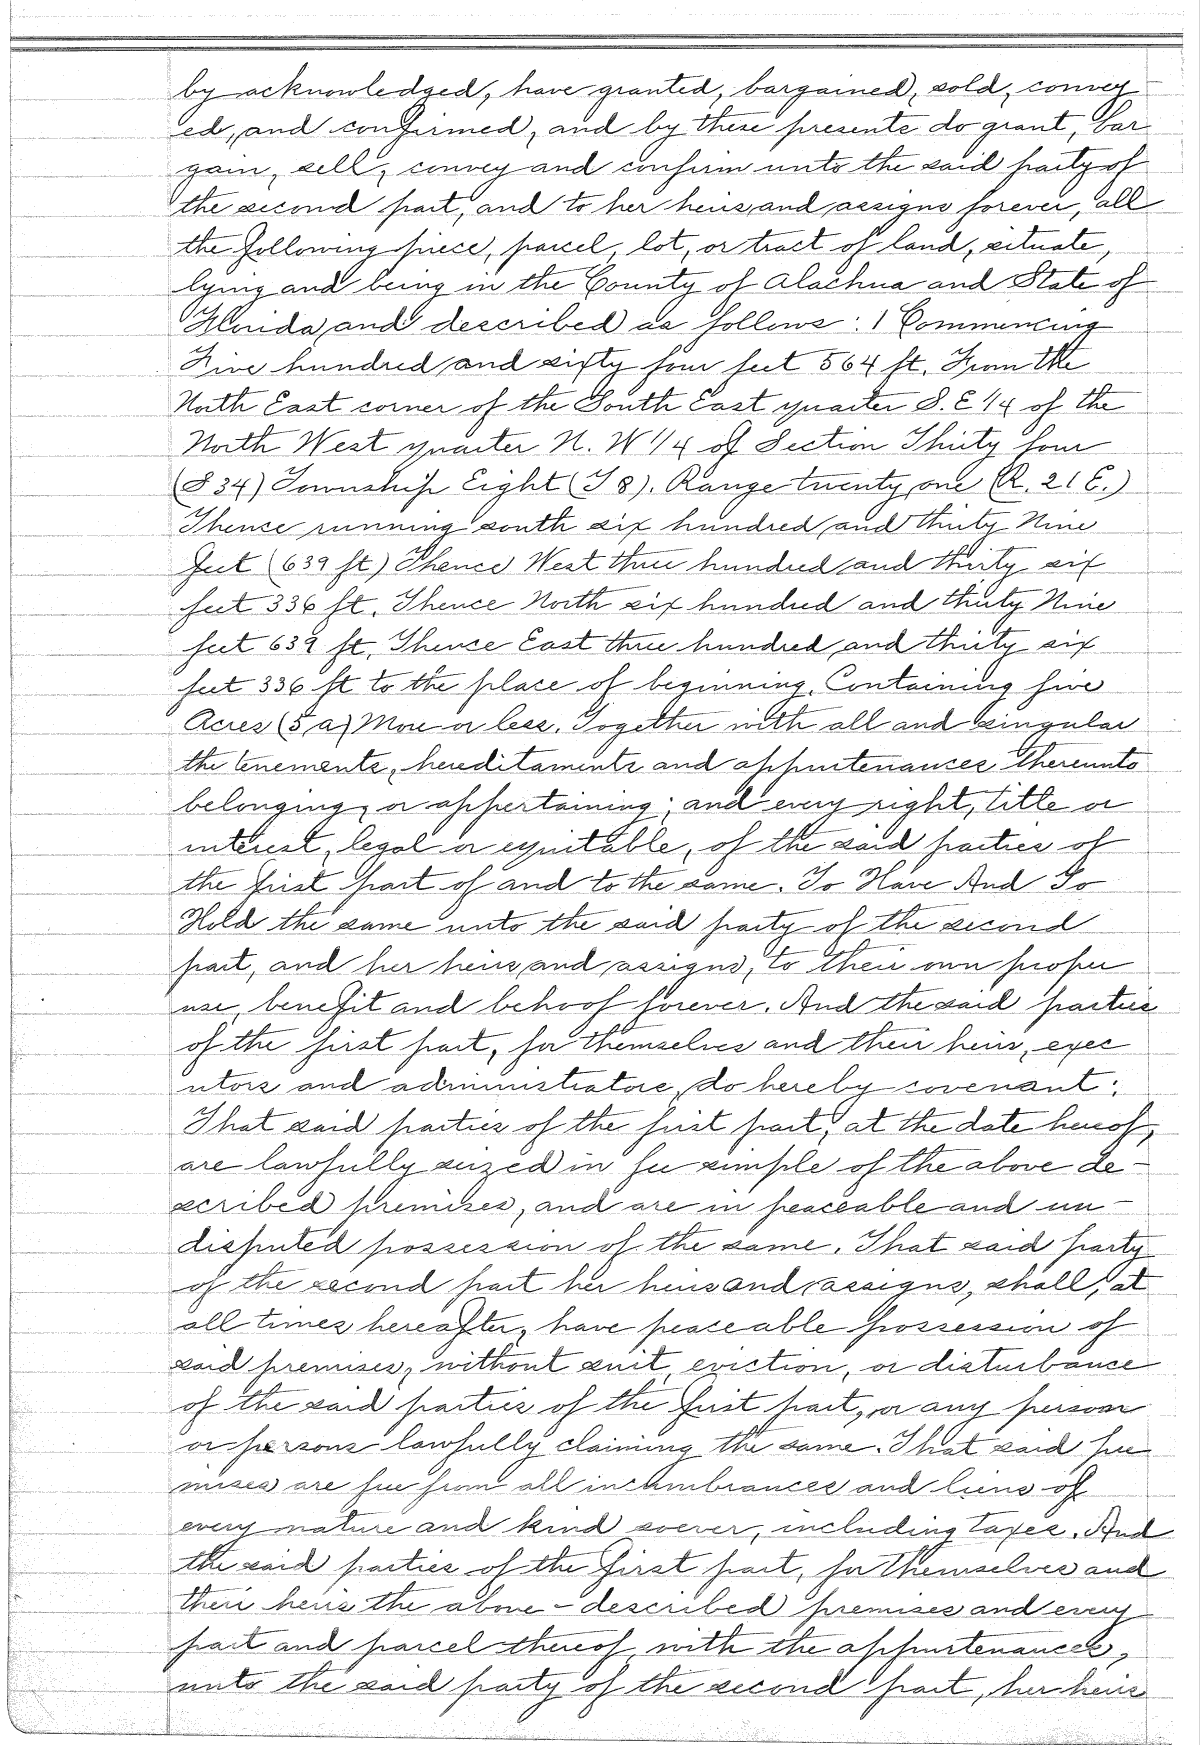 by acknowledged, have granted, bargained, sold, convey
ed, and confirmed, and by these presents do grant, bar
gain, sell, convey and confirm unto the said party of
the second part, and to her heirs and assigns forever, all
the following piece, parcel, lot, or tract of land, situate,
lying and being in the County of Alachua and State of
Florida, and described as follows: Commencing
Five hundred and sixty four feet 564 ft. From the
North East corner of the South East quarter S. E 1/4 of the
North West quarter N. W 1/4 of Section Thirty four
(S 34) Township Eight (T 8). Range twenty one (R. 21 E.)
Thence running south six hundred and thirty Nine
feet (639 ft) Thence West three hundred and thirty six
feet 336 ft. Thence North six hundred and thirty Nine
feet 639 ft. Thence East three hundred and thirty six
feet 336 ft to the place of beginning. Containing five
Acres (5 a) More or less. Together with all and singular
the tenements, hereditaments and appurtenances thereunto
belonging, or appertaining; and every right, title or
interest, legal or equitable, of the said parties of
the first part of and to the same. To Have And To
Hold the same unto the said party of the second
part, and her heirs and assigns, to their own proper
use, benefit and behoof forever. And the said parties
of the first part, for themselves and their heirs, exec
utors and administrators, do hereby covenant:
That said parties of the first part, at the date hereof,
are lawfully seized in fee simple of the above de-
scribed premises, and are in peaceable and un-
disputed possession of the same. That said party
of the second part her heirs and assigns, shall, at
all times hereafter, have peaceable possession of
said premises, without suit, eviction, or disturbance
of the said parties of the first part, or any person
or persons lawfully claiming the same. That said pre
mises are free from all incumbrances and liens of
every nature and kind soever, including taxes. And
the said parties of the first part, for themselves and
their heirs the above-described premises and every
part and parcel thereof, with the appurtenances,
unto the said party of the second part, her heirs